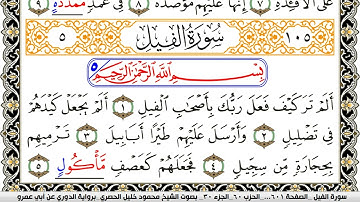 عَلَى الْأَفْئِدَةِ ٧ إِنَّهَا عَلَيْهِم مُّوصَدَةٌ ٨ فِي عَمَدٍ مُّمَدَّدَةٍ ٩
٥ سُورَةُ الْفِيلِ ١٠٥
بِسْمِ اللَّهِ الرَّحْمَٰنِ الرَّحِيمِ ٥
أَلَمْ تَرَ كَيْفَ فَعَلَ رَبُّكَ بِأَصْحَابِ الْفِيلِ ١ أَلَمْ يَجْعَلْ كَيْدَهُمْ
فِي تَضْلِيلٍ ٢ وَأَرْسَلَ عَلَيْهِمْ طَيْرًا أَبَابِيلَ ٣ تَرْمِيهِم
بِحِجَارَةٍ مِّن سِجِّيلٍ ٤ فَجَعَلَهُمْ كَعَصْفٍ مَّأْكُولٍ ٥
سورة الفيل _ الصفحة ٦٠١ _ الحزب ٦٠ _ الجزء ٣٠ _ بصوت الشيخ محمود خليل الحصري _ برواية الدوري عن أبي عمرو